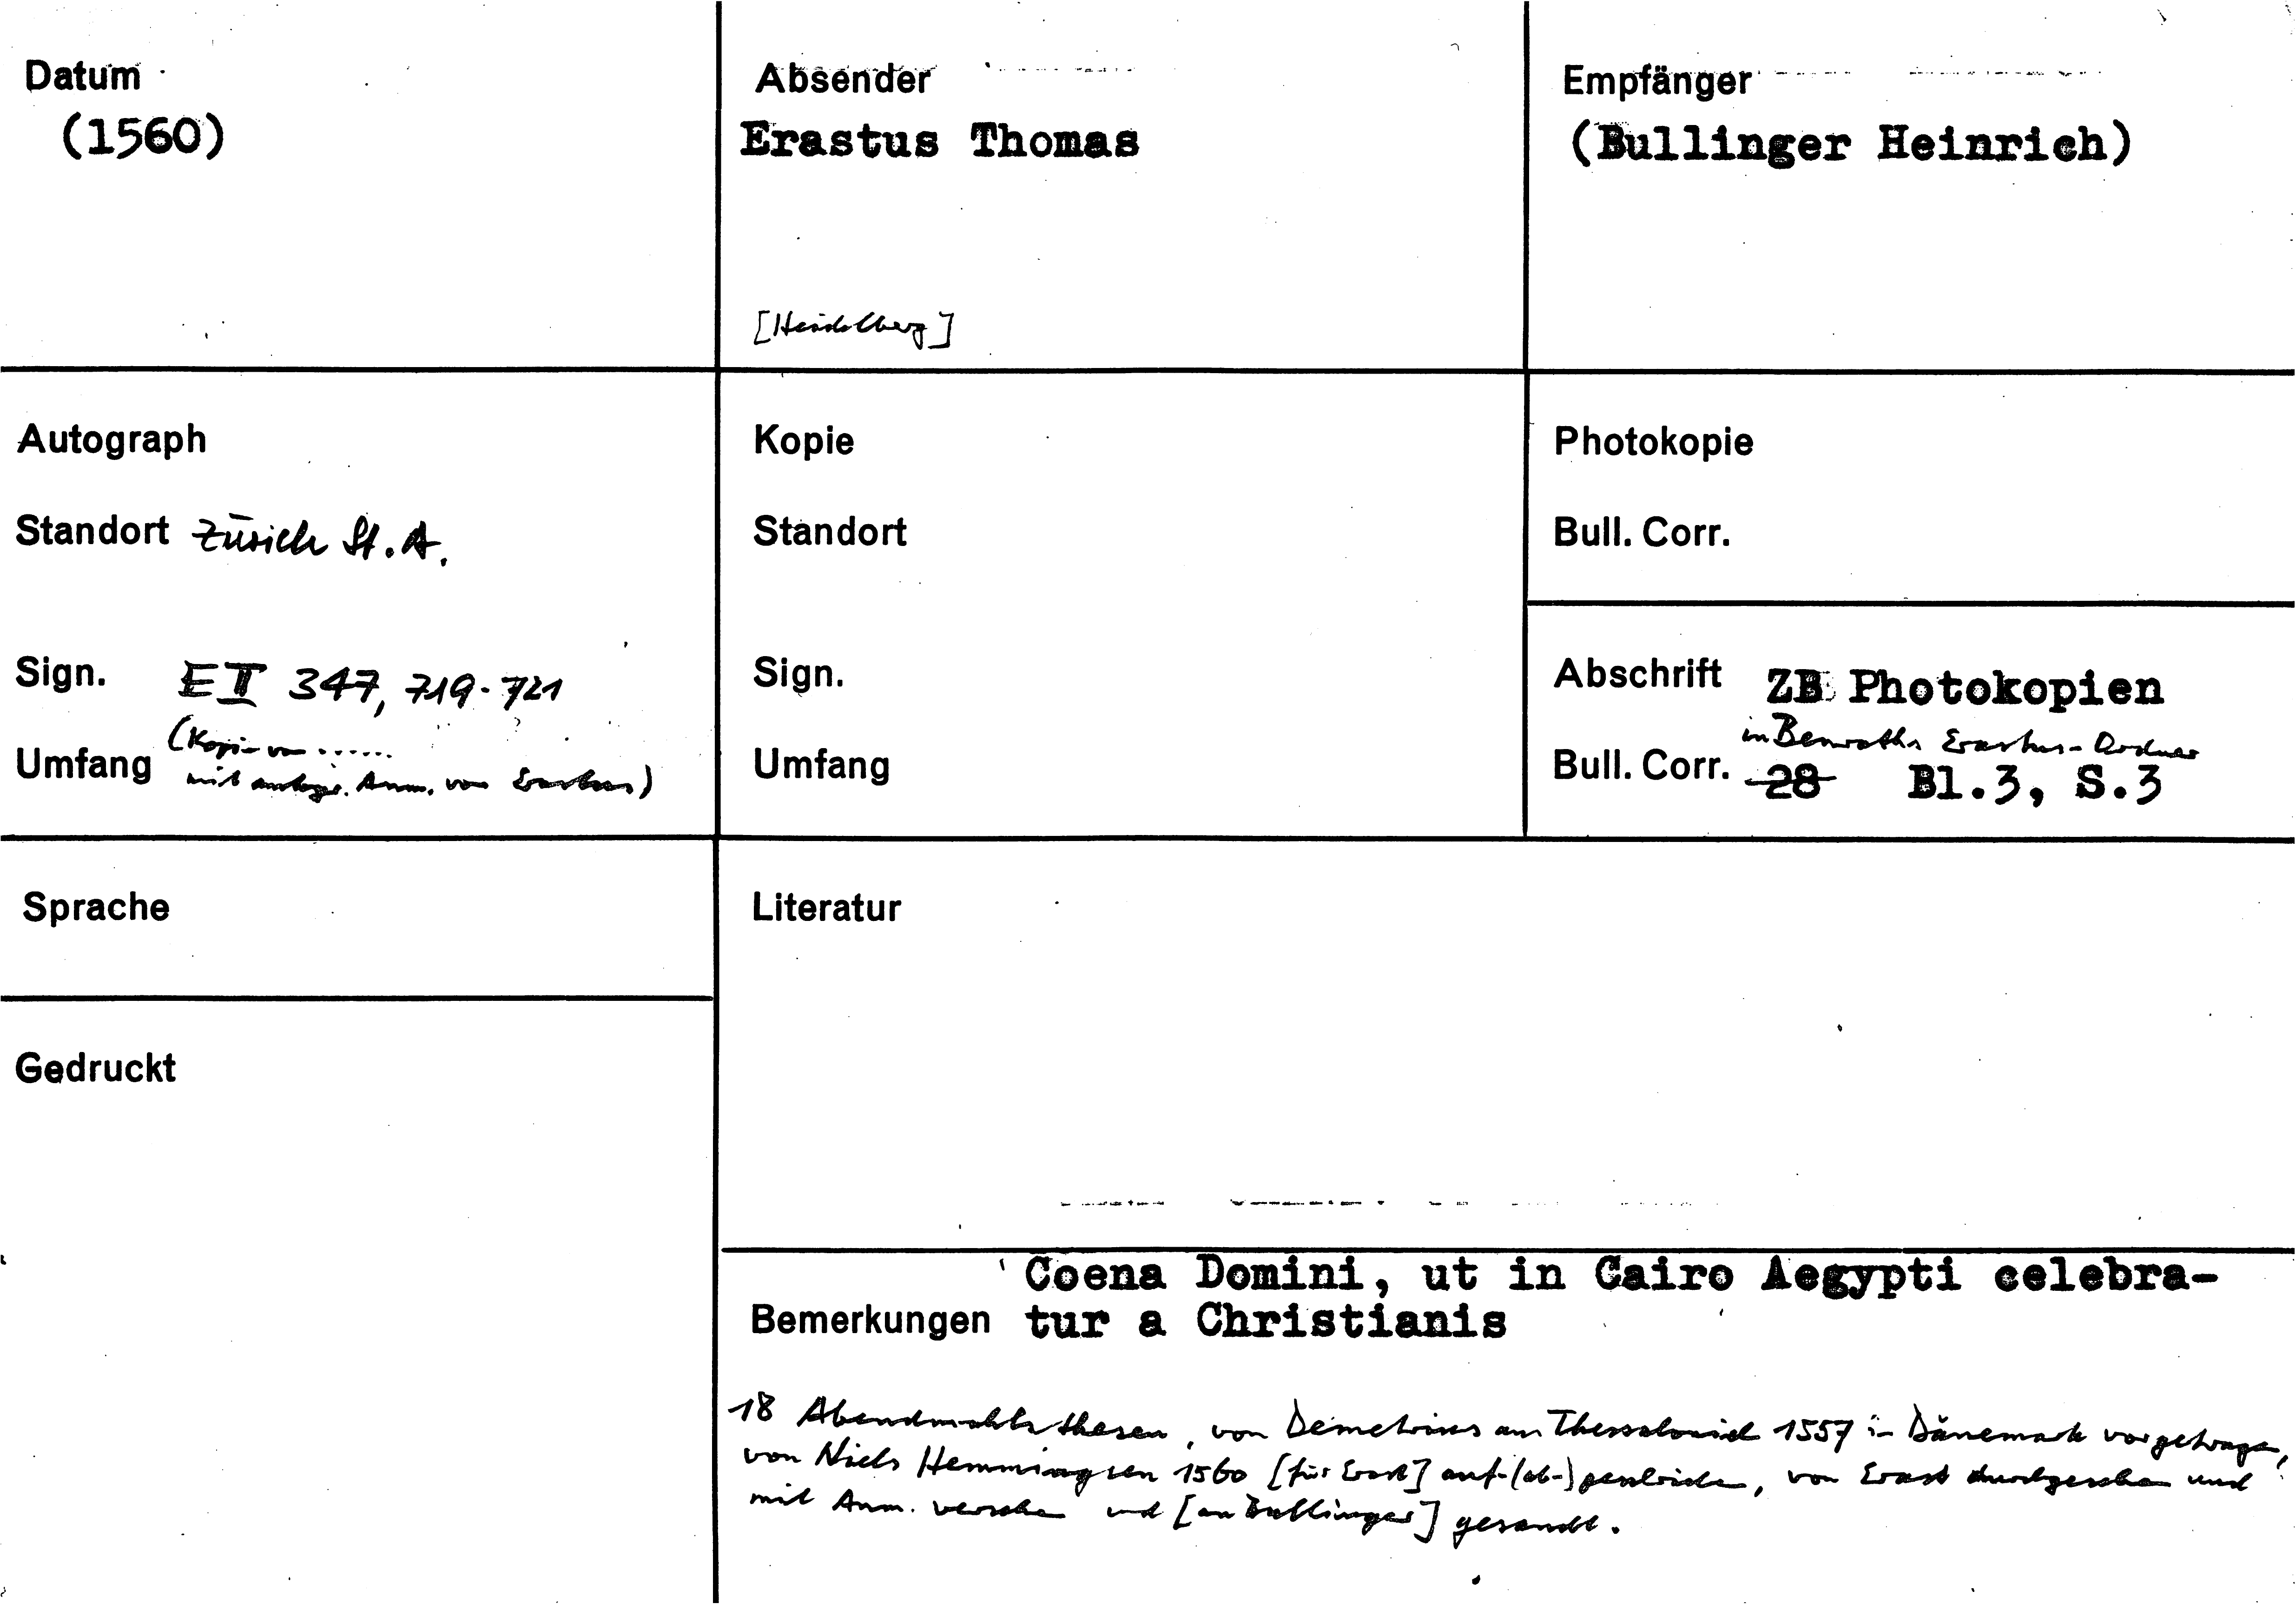 Datum
(1560)
Absender
Erastus Thomas
[Heidelberg]
Empfänger
(Bullinger Heinrich)
Autograph
Standort Zürich St. A.
Sign. E II 347, 719-721
(Kopie von ......
Umfang mit autogr. Anm. von Erastus)
Kopie
Standort
Sign.
Umfang
Photokopie
Bull. Corr.
Abschrift ZB Photokopien
in Benraths Erastus-Ordner
Bull. Corr. 28 Bl.3, S.3
Sprache
Gedruckt
Literatur
Coena Domini, ut in Cairo Aegypti celebra-
Bemerkungen tur a Christianis
18 Abendmahlsthesen, von Demetrius aus Thessalonich 1557 in Dänemark vorgetragen,
von Niels Hemmingsen 1560 [für Erast] auf-(ab-)geschrieben, von Erast durchgesehen und
mit Anm. versehen und [an Bullinger] gesandt.